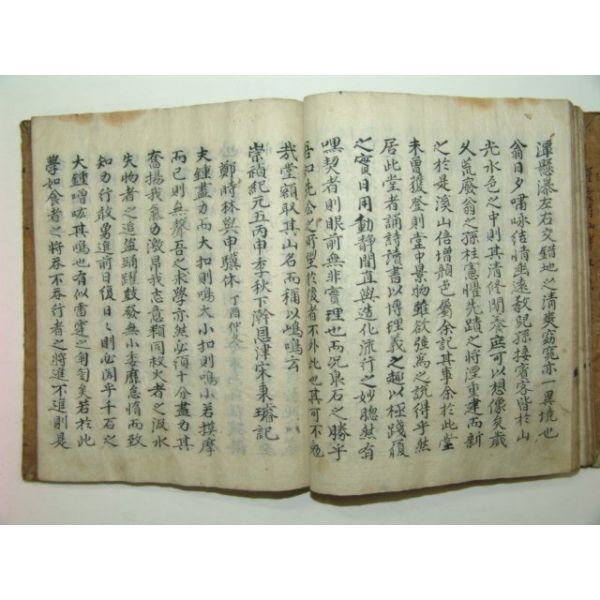 渾懸瀑左右交錯地之清爽窈窕亦一異境也
翁日夕嘯咏結情幽遠教兒孫接賓客皆於山
光水色之中則其清修閒養庶可以想像矣歲
久荒廢翁之孫柱憲懼先蹟之將湮重建而新
之於是溪山倍增顏色屬余記其事余於此堂
未曾復登則堂中景物雖欲強爲之說得乎然
居此堂者誦詩讀書以博理義之趣以極踐履
之實日用動靜間直與造化流行之妙聰然有
嘿契者則眼前無非實理也而况泉石之勝乎
吾知先公之所望於後者不外此也其可不勉
哉堂額取其山名而稱以嶋鳴云
崇禎紀元五丙申季秋下澣恩津宋秉璿記
鄭時林與申驥休 丁酉仲
夫鍾盡力而大扣則鳴大小扣則鳴小若摸摩
而已則無聲吾之求學亦然必須十分盡力其
奮揚我氣力激昂我志意類同救火者之汲水
失物者之追盜踊躍鼓發無小委靡怠惰而致
知力行敢勇進前日復日則必聞乎千石之
大鍾噌吰其鳴也有似雷霆之匐匐矣若於此
學如食者之將吞不吞行者之將進不進則是